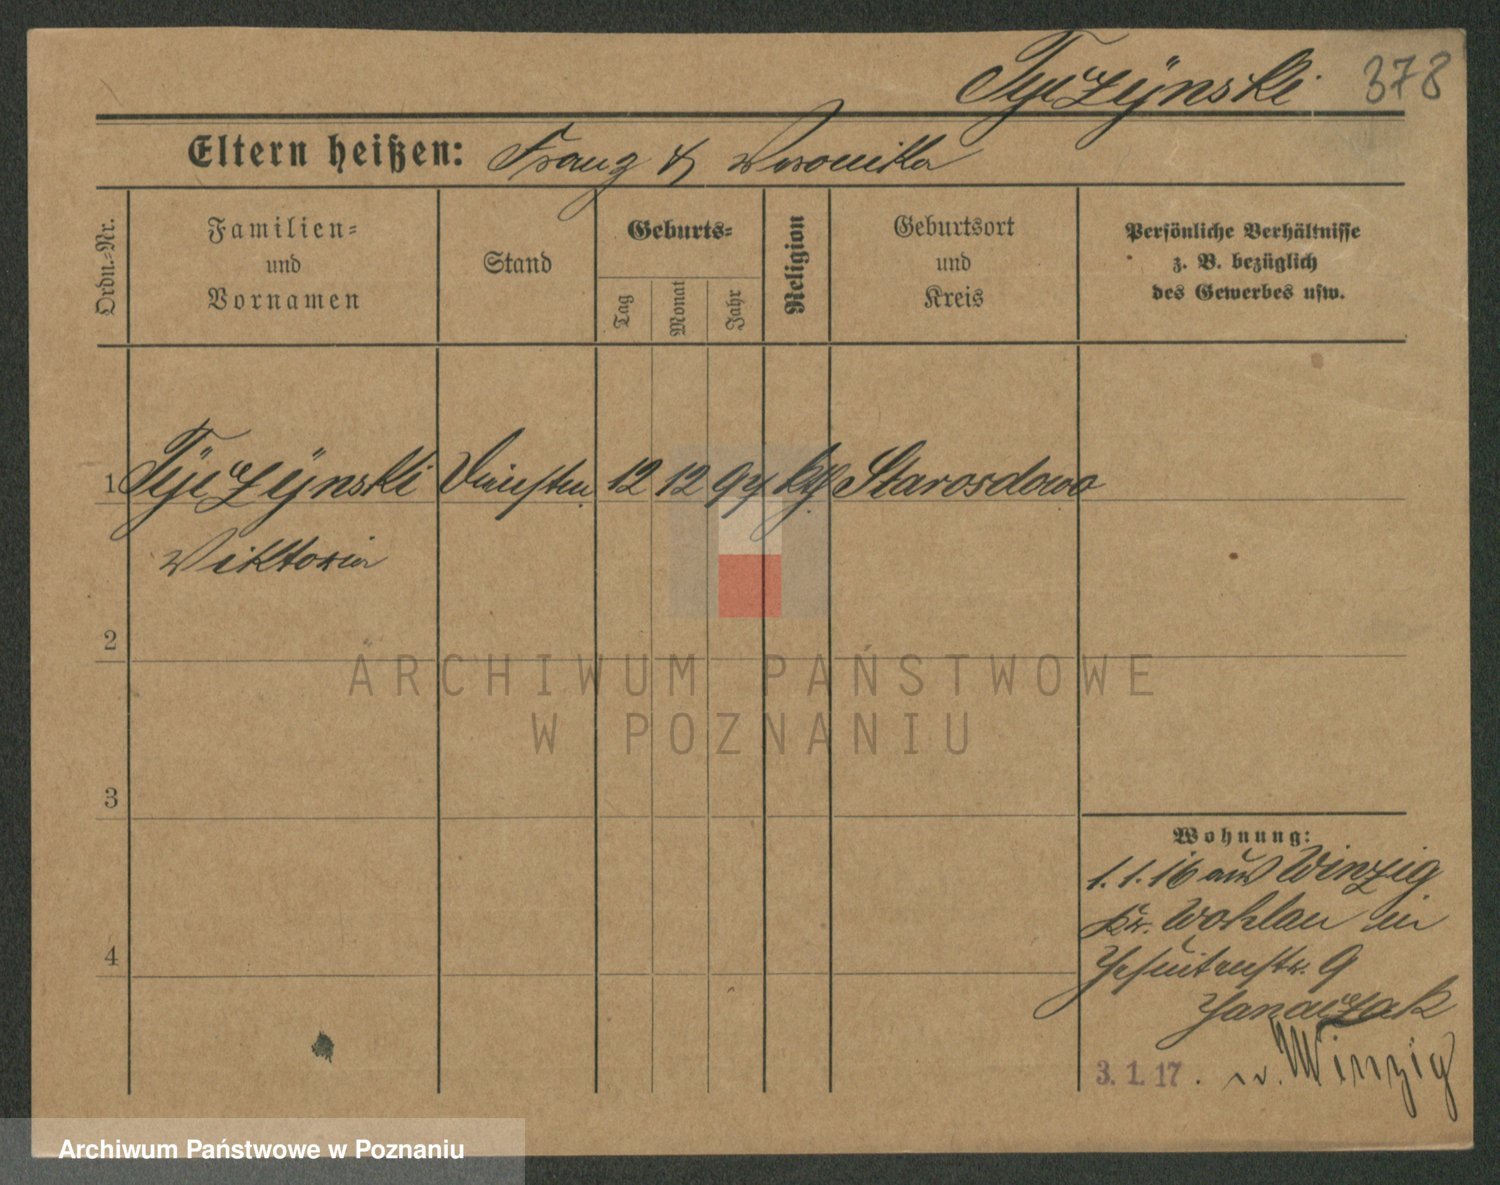 Tyczÿnski 378
Eltern heißen: Franz & Veronika
Ordn.-Nr.
Familien-
und
Vornamen
Stand
Geburts-
Tag
Monat
Jahr
Religion
Geburtsort
und
Kreis
Persönliche Verhältnisse
z. B. bezüglich
des Gewerbes usw.
1 Tÿczÿnski 12 12 94 kth Starosdowo
Viktoria
2
ARCHIWUM PAŃSTWOWE
W POZNANIU
3
Wohnung:
1.1.16 aus Winzig
Kr. Wohlau in
4
Jesuitenstr. 9
Janaczak
3.1.17. n. Winzig
Archiwum Państwowe w Poznaniu